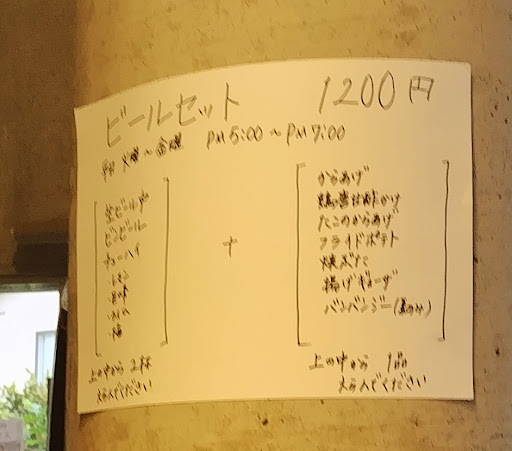 ビールセット 1200円
火曜〜金曜 PM5:00〜PM7:00
生ビール中
ビンビール
チューハイ
・レモン
・梅
+
からあげ
たこのからあげ
フライドポテト
焼ぶた
揚げギョーザ
バンバンジー
上の中から 2杯
えらんでください
上の中から 1品
えらんでください